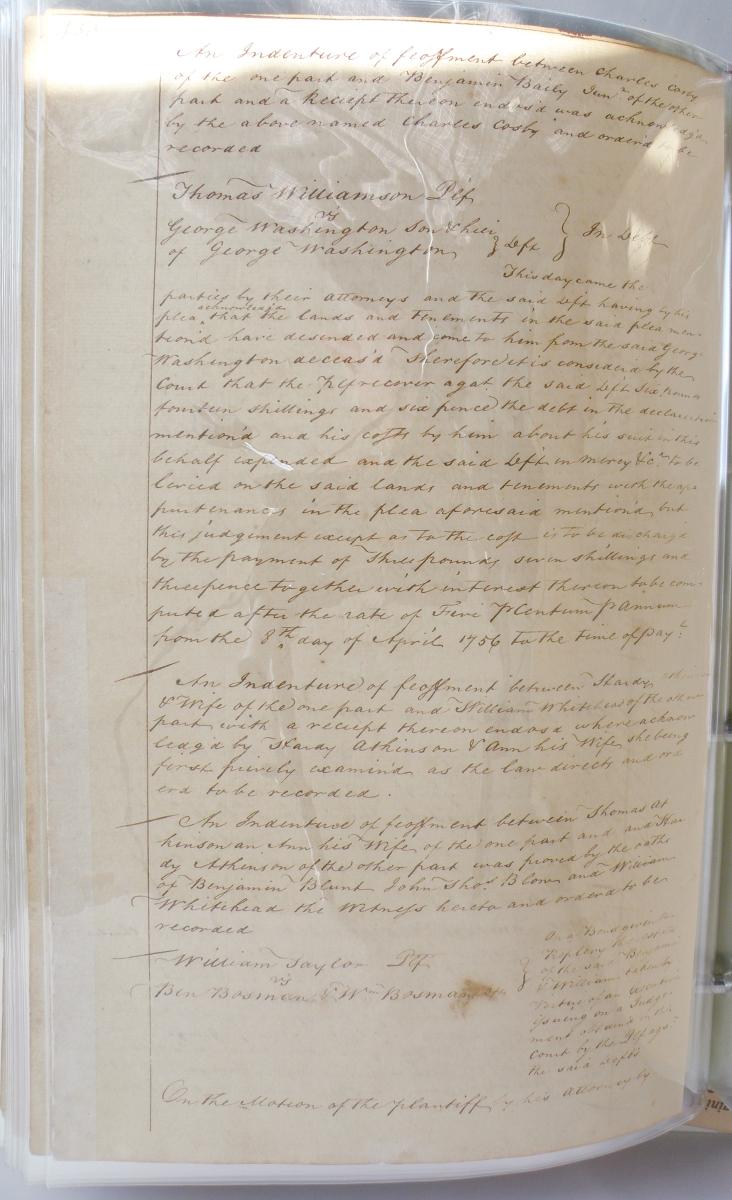 An Indenture of feoffment between Charles Cosby
of the one part and Benjamin Baily Junr of the other
part and a Reciept thereon endos'd was acknowledg'd
by the above named Charles Cosby and order'd to be
recorded
Thomas Williamson Plf
vs
George Washington Son & hier
of George Washington } Deft } In Debt
This day came the
parties by their attorneys and the said Deft having by his
plea acknowledged that the lands and tenements in the said plea men-
tion'd have desended and come to him from the said George
Washington deceas'd Therefore it is consider'd by the
Court that the Plf recover agat the said Deft Six pounds
fourteen shillings and six pence the debt in the declaration
mention'd and his costs by him about his suit in this
behalf expended and the said Deft in mercy &c. to be
levied on the said lands and tenements with the apa
purtenances in the plea aforesaid mention'd, but
this judgement except as to the cost is to be discharged
by the payment of Three pounds seven shillings and
threepence together with interest thereon to be com-
puted after the rate of Five P Centum P Annum
from the 8th day of April 1756 to the time of Payt
An Indenture of feoffment between Hardy
& Wife of the one part and William Whitehead of the other
part with a reciept thereon endos'd where acknow
ledg'd by Hardy Atkinson & Ann his Wife, she being
first privily examin'd as the law directs and ord
erd to be recorded.
An Indenture of feoffment between Thomas At
kinson an, Ann his Wife, of the one part and and Har
dy Atkinson of the other part was proved by the oaths
of Benjamin Blunt John Thos Blow and William
Whitehead the Witness hereto and orderd to be
recorded
William Taylor Plf
vs
Ben Bosman, & Wm Bosman
On a Bond given to
Replevy the
of the said Benjamin
& William taken by
Virtue of an
issueing on a Judge-
ment obtain'd in this
Court by the Plf ags
the said Defts
On the Motion of the plantiff by his attorney by